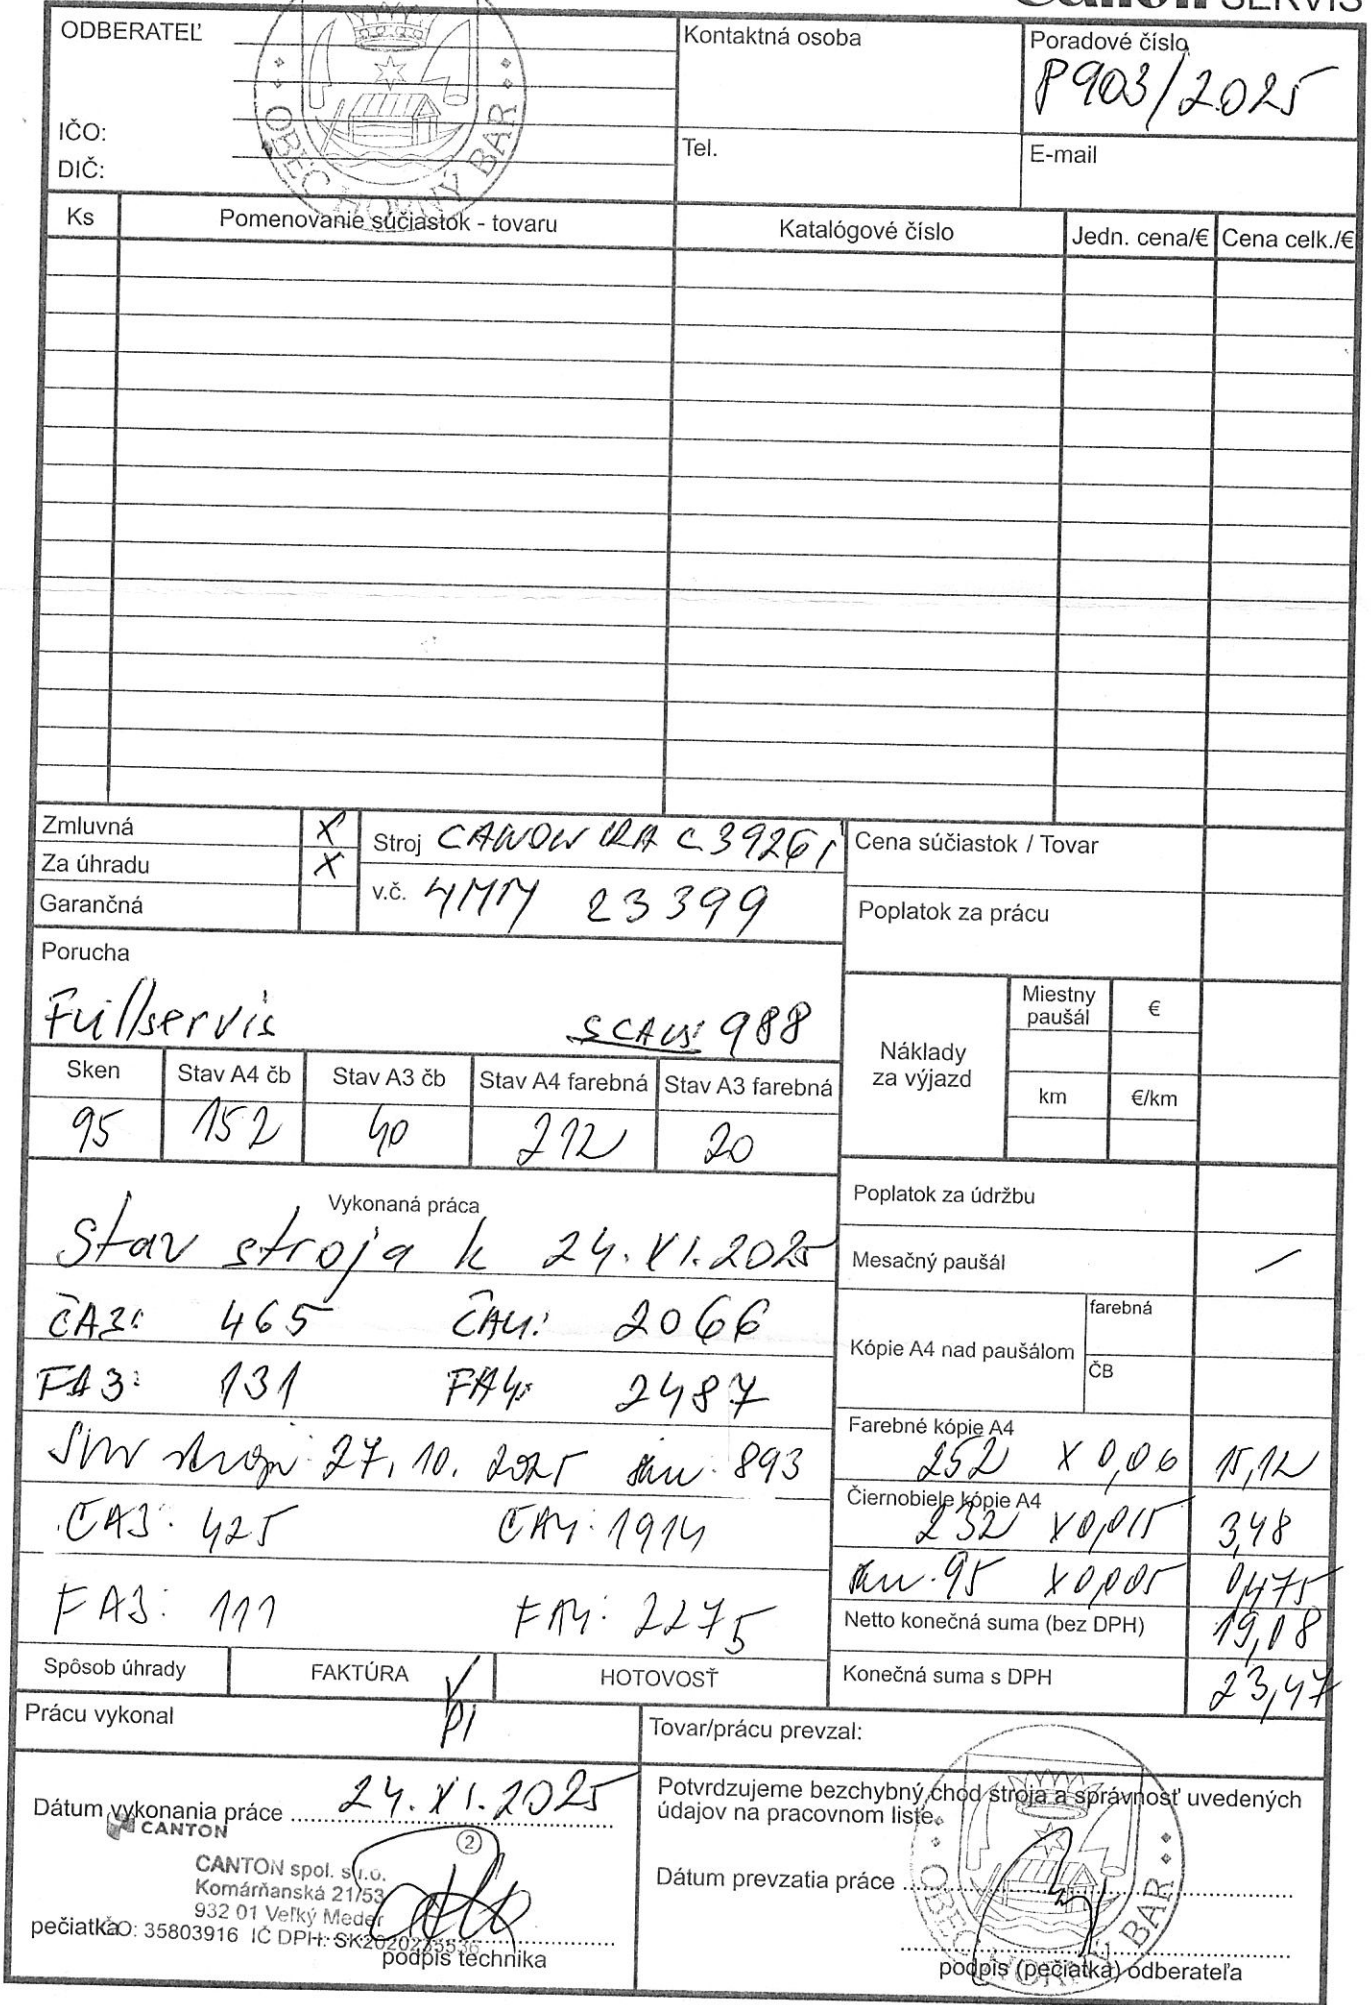 Canon SERVIS
ODBERATEĽ
IČO:
DIČ:
OBEC HORNÝ BAR
Kontaktná osoba
Tel.
Poradové číslo
P903/2025
E-mail
Ks Pomenovanie súčiastok - tovaru Katalógové číslo Jedn. cena/€ Cena celk./€
Zmluvná X
Za úhradu X
Garančná
Stroj CANON IRA C3926i
v.č. 4MM 23399
Porucha
Fullservis SCAN: 988
Sken Stav A4 čb Stav A3 čb Stav A4 farebná Stav A3 farebná
95 152 40 212 20
Vykonaná práca
Stav stroja k 24.XI.2025
ČA3: 465 ČA4: 2066
FA3: 131 FA4: 2487
Stav stroja: 27.10.2025 893
ČA3: 425 ČA4: 1914
FA3: 111 FA4: 2275
Cena súčiastok / Tovar
Poplatok za prácu
Náklady za výjazd
Miestny paušál €
km €/km
Poplatok za údržbu
Mesačný paušál /
Kópie A4 nad paušálom
farebná
ČB
Farebné kópie A4
252 x 0,06 15,12
Čiernobiele kópie A4
232 x 0,015 3,48
95 x 0,005 0,475
Netto konečná suma (bez DPH) 19,08
Konečná suma s DPH 23,47
Spôsob úhrady FAKTÚRA HOTOVOSŤ
Prácu vykonal
Tovar/prácu prevzal:
Dátum vykonania práce 24.XI.2025
CANTON
2
CANTON spol. s r.o.
Komárňanská 21/53
932 01 Veľký Meder
pečiatka IČO: 35803916 IČ DPH: SK2020235536
podpis technika
Potvrdzujeme bezchybný chod stroja a správnosť uvedených
údajov na pracovnom liste.
Dátum prevzatia práce
OBEC HORNÝ BAR
podpis (pečiatka) odberateľa